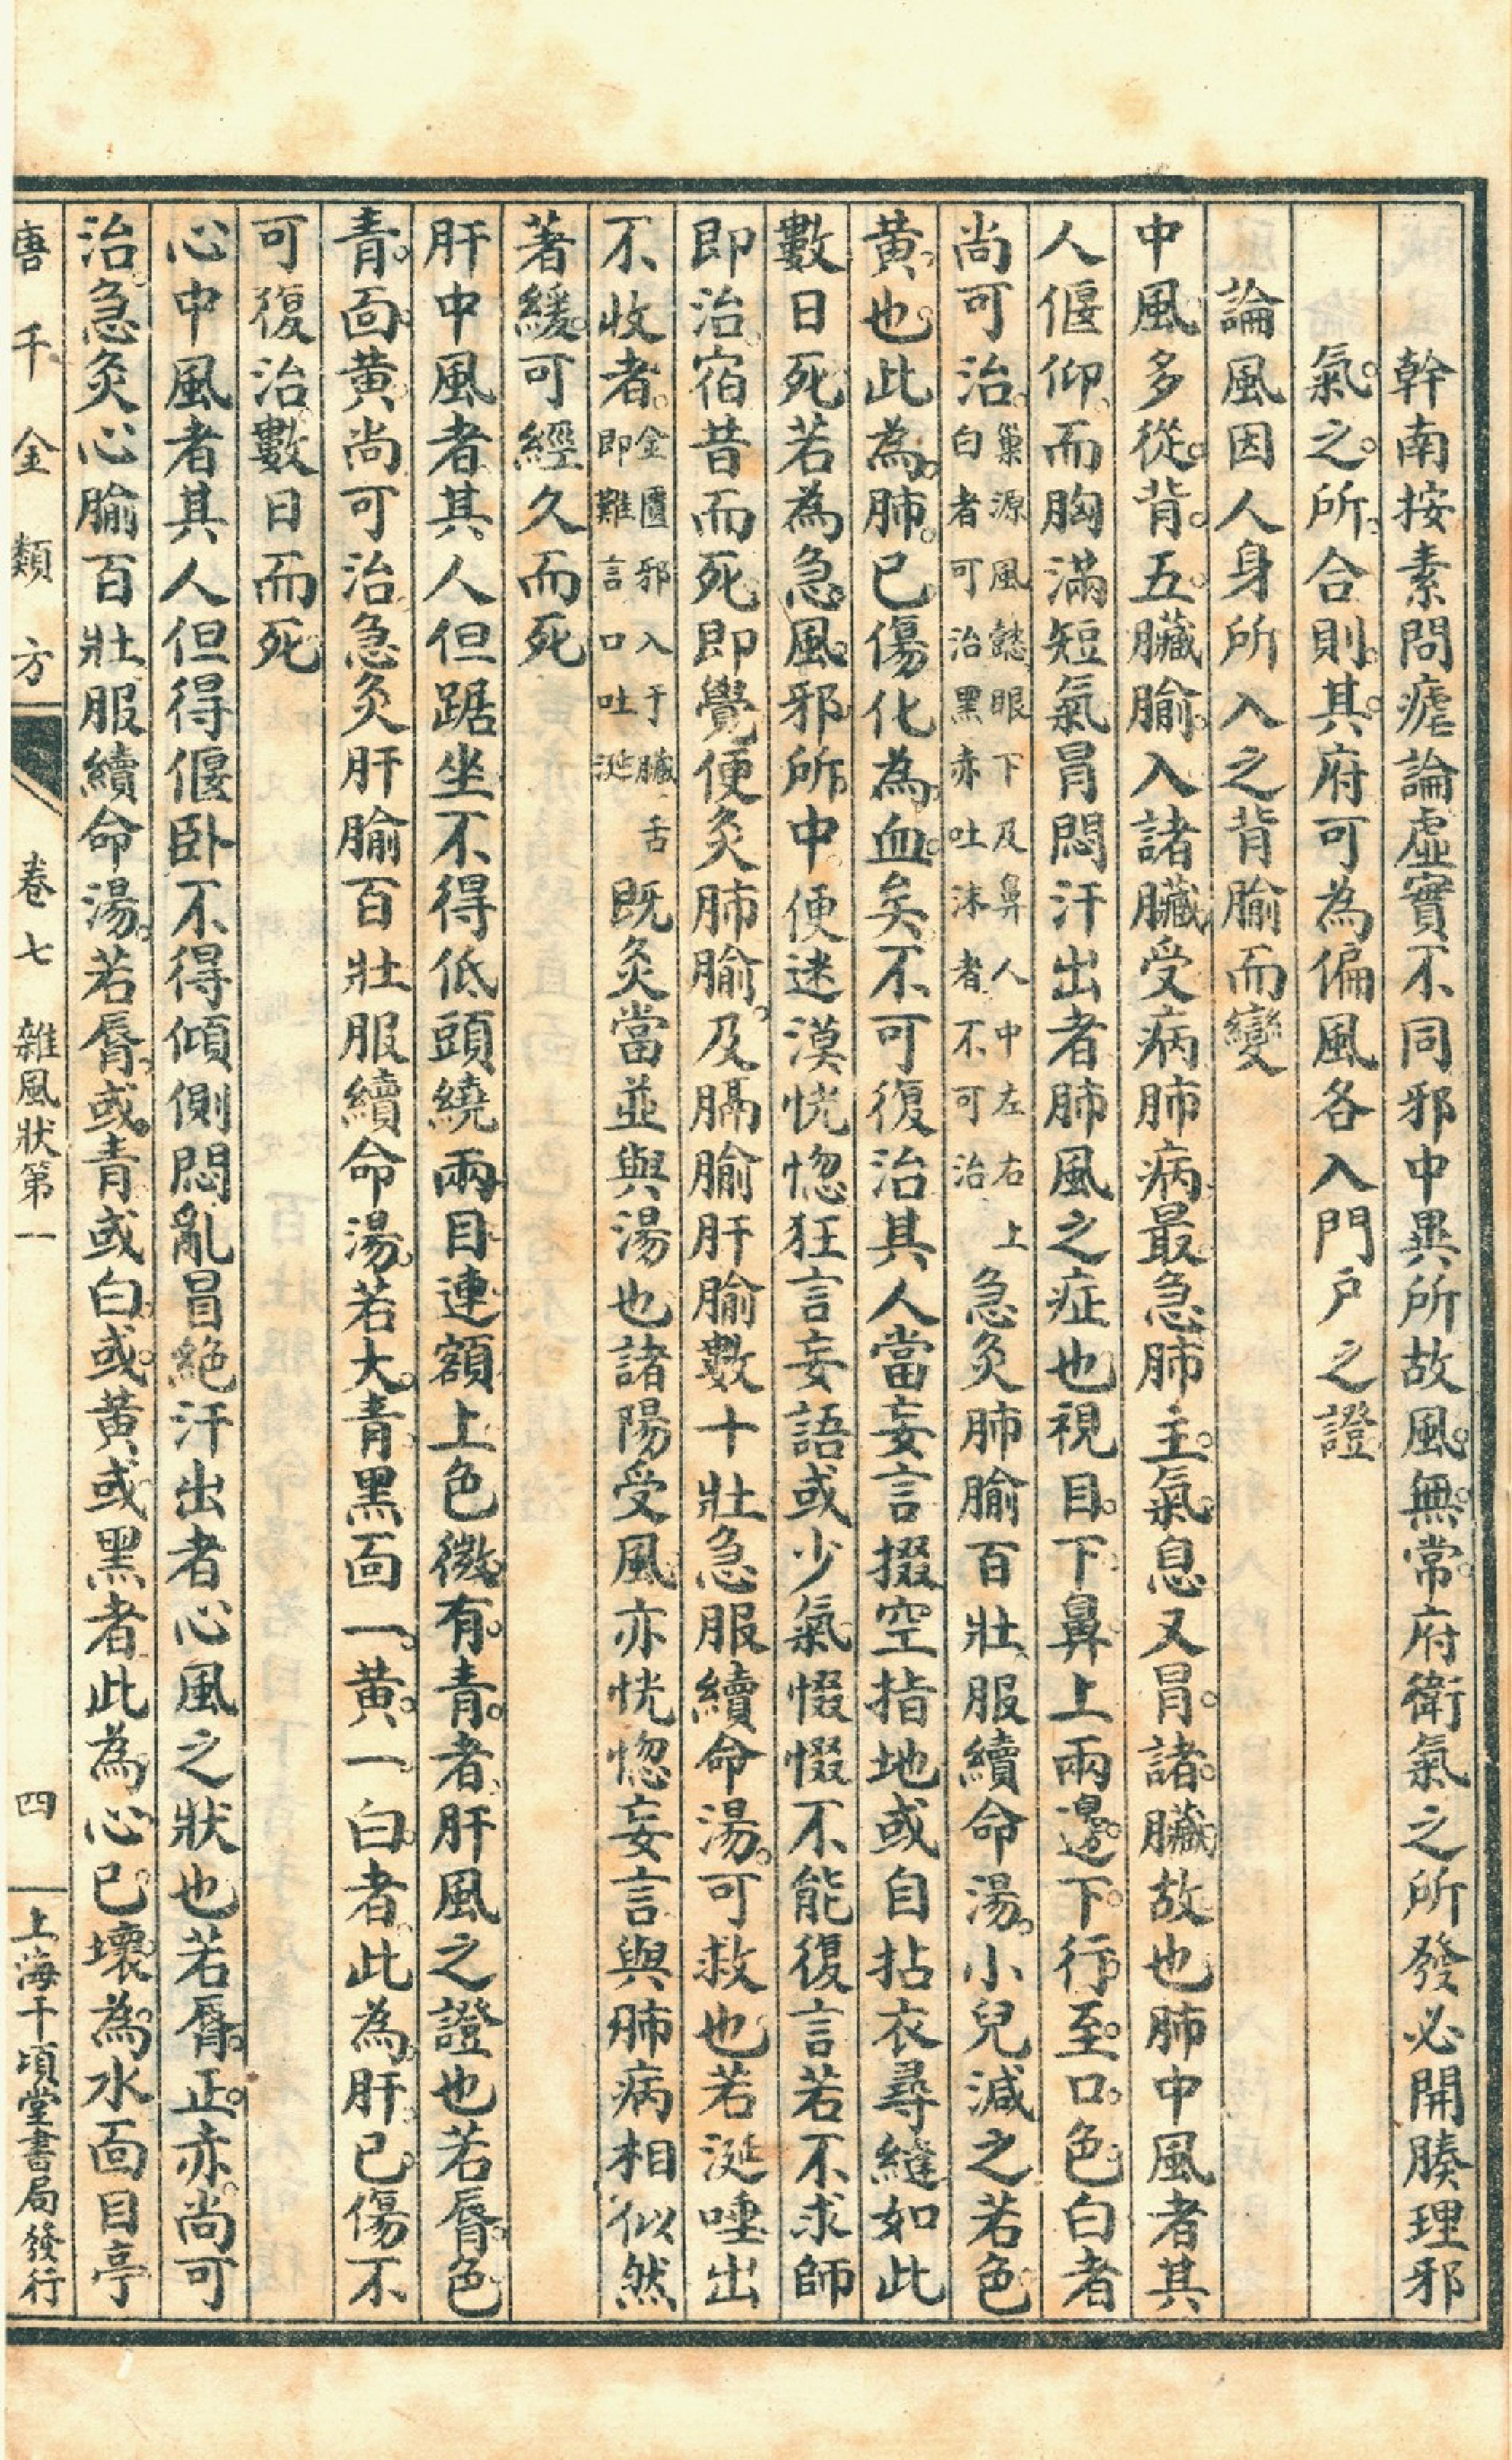 幹南按素問瘧論虛實不同邪中異所故風。無。常。府衛氣之所發必開腠理邪
氣。之。所。合則。其。府可為偏風各入門戶之證
論風因人身所入之背腧而變
中風。多從。背。五。臟腧。入諸臟受病肺病最急肺主。氣。息又冐。諸。臟。故也肺中風者其
人偃仰。而胸滿短氣冐悶汗出者肺風之症也視目。下。鼻。上兩。邊。下。行。至。口。色。白者
尚可治。巢源風懿眼下及鼻人中左右上白者可治黑赤吐沫者不可治急灸肺腧百壯服續命湯。小兒減之若色。
黃。也。此為。肺。已傷化為。血。矣。不可復治其人當妄言掇空指地或自拈衣尋縫如此
數日死若為急。風。邪。所。中。便迷漠恍惚狂言妄語或少氣惙惙不能復言若不求師
即治。宿昔而死。即覺便灸肺腧。及膈腧肝腧數十壯急服續命湯。可救也若涎唾出
不收者。金匱邪入于臟舌即難言口吐涎既灸當並與湯也諸陽受風亦恍惚妄言與肺病相似然
著緩。可經久而死
肝中風者其人但踞坐不得低頭繞兩目連額上色微。有。青。者。肝風之證也若脣。色
青。面。黃。尚可治急灸肝腧百壯服續命湯。若大。青黑面一。黃。一。白。者。此為。肝。已。傷不
可復治數日而死
心中風者其人但得偃臥不得傾側悶亂冒絕汗出者心風之狀也若脣。正。亦。尚可
治。急灸心腧百壯服續命湯。若脣。或。青或白。或。黃或黑者此為。心。已。壞。為。水面目亭
唐千金類方 卷七 雜風狀第一 四 上海千頃堂書局發行